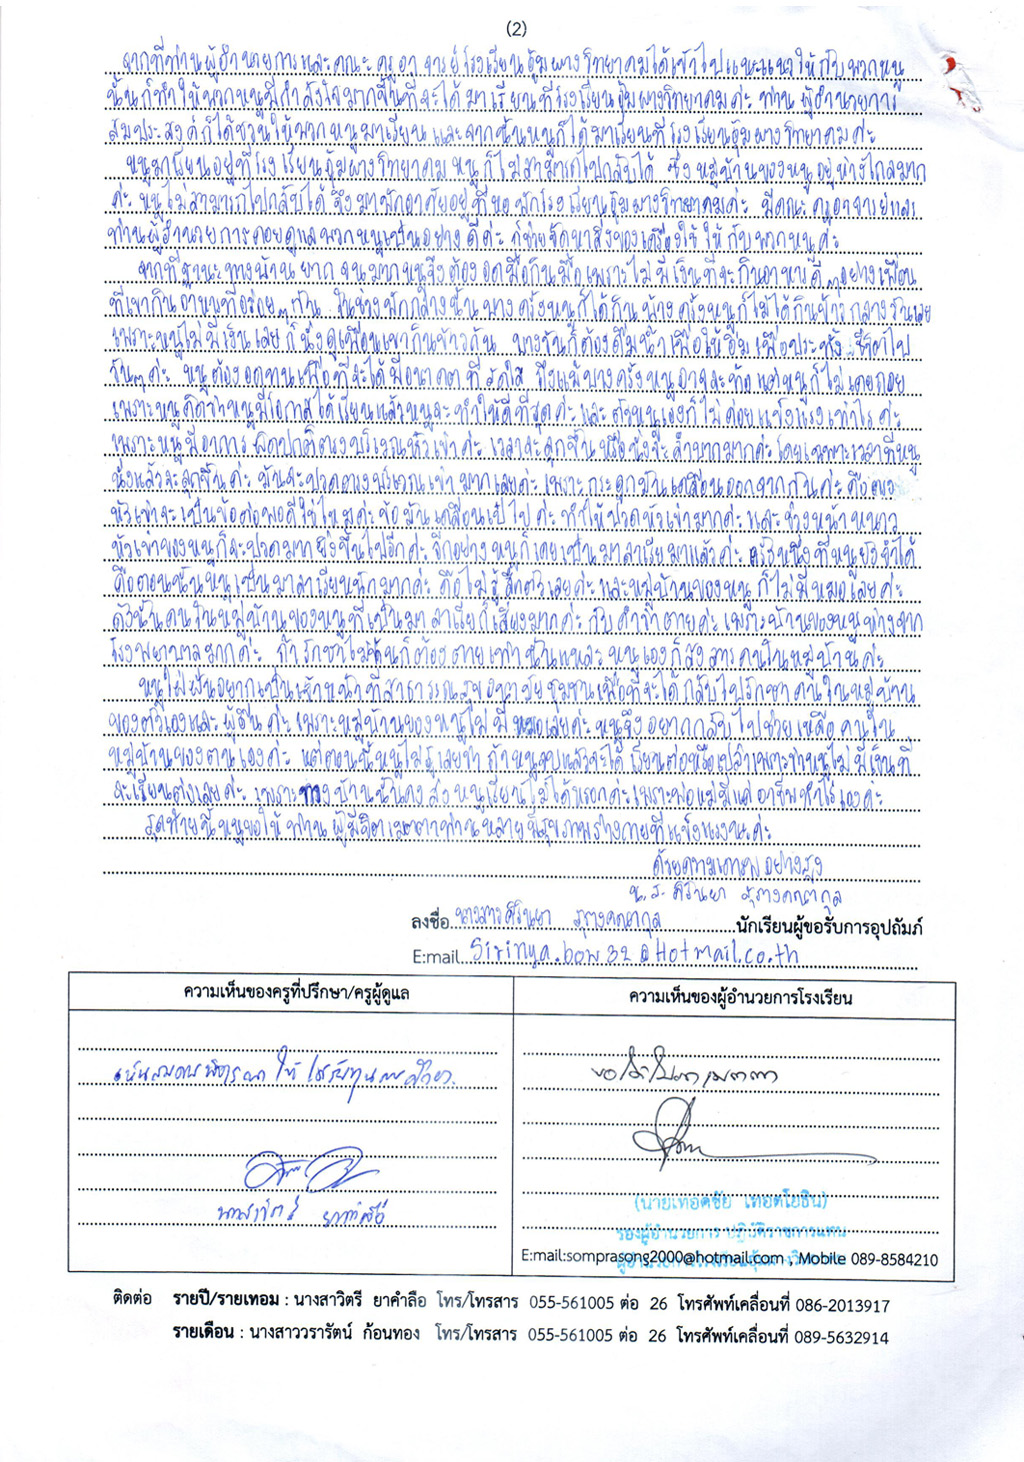 (2)
จากที่ท่านผู้อำนวยการและคณะครูอาจารย์โรงเรียนอุ้มผางวิทยาคมได้เข้าไปแนะแนวให้กับพวกหนู
นั้นก็ทำให้พวกหนูมีกำลังใจมากขึ้นที่จะได้มาเรียนที่โรงเรียนอุ้มผางวิทยาคมค่ะ ท่านผู้อำนวยการ
สมประสงค์ก็ได้ชวนให้พวกหนูมาเรียน และจากนั้นหนูก็ได้มาเรียนที่โรงเรียนอุ้มผางวิทยาคมค่ะ
หนูมาเรียนอยู่ที่โรงเรียนอุ้มผางวิทยาคม หนูก็ไม่สามารถไปกลับได้ ซึ่งหมู่บ้านของหนูอยู่ห่างไกลมาก
ค่ะ หนูไม่สามารถไปกลับได้ จึงมาพักอาศัยอยู่ที่หอพักโรงเรียนอุ้มผางวิทยาคมค่ะ มีคณะครูอาจารย์และ
ท่านผู้อำนวยการคอยดูแลพวกหนูเป็นอย่างดีค่ะ ก็ช่วยจัดหาสิ่งของเครื่องใช้ ให้กับพวกหนูค่ะ
จากที่ฐานะทางบ้านยากจนมากหนูจึงต้องอดมื้อกินมื้อเพราะไม่มีเงินที่จะกินอาหารดีๆอย่างเพื่อน
ที่เขากินอาหารที่อร่อยๆกัน ในช่วงพักกลางวันบางครั้งหนูก็ได้กินบางครั้งหนูก็ไม่ได้กินข้าวกลางวันเลย
เพราะหนูไม่มีเงินเลย ก็นั่งดูเพื่อนเขากินข้าวกัน บางวันก็ต้องดื่มน้ำเพื่อให้อิ่มเพื่อประทังชีวิตไป
วันๆค่ะ หนูต้องอดทนเพื่อที่จะได้มีอนาคตที่สดใส ถึงแม้บางครั้งหนูอาจจะท้อแต่หนูก็ไม่เคยถอย
เพราะหนูคิดว่าหนูมีโอกาสได้เรียนแล้วหนูจะทำให้ดีที่สุดค่ะ และตัวหนูเองก็ไม่ค่อยแข็งแรงเท่าไรค่ะ
เพราะหนูมีอาการผิดปกติตรงบริเวณหัวเข่าค่ะ เวลาจะลุกขึ้นหรือนั่งจะลำบากมากค่ะโดยเฉพาะเวลาที่หนู
นั่งแล้วจะลุกขึ้นค่ะ มันจะปวดตรงบริเวณเข่ามากเลยค่ะ เพราะกระดูกมันเคลื่อนออกจากกันค่ะ คือตรง
หัวเข่าจะเป็นข้อต่อพอดีใช่ไหมค่ะ ข้อมันเคลื่อนเป๋ไปค่ะ ทำให้ปวดหัวเข่ามากค่ะ และช่วงหน้าหนาว
หัวเข่าของหนูก็จะปวดมากยิ่งขึ้นไปอีกค่ะ อีกอย่างหนูก็เคยเป็นมาลาเรียมาแล้วค่ะ ครั้งหนึ่งที่หนูยังจำได้
คือตอนนั้นหนูเป็นมาลาเรียหนักมากค่ะ คือไม่รู้สึกตัวเลยค่ะ และหมู่บ้านของหนูก็ไม่มีหมอเลยค่ะ
ดังนั้นคนในหมู่บ้านของหนูที่เป็นมาลาเรียก็เสี่ยงมากค่ะกับคำว่าตายค่ะ เพราะบ้านของหนูห่างจาก
โรงพยาบาลมากค่ะ ถ้ารักษาไม่ทันก็ต้องตายเท่านั้นแหละ หนูเองก็สงสารคนในหมู่บ้านค่ะ
หนูใฝ่ฝันอยากเป็นเจ้าหน้าที่สาธารณสุขอาชัยชุมชนเพื่อที่จะได้กลับไปรักษาคนในหมู่บ้าน
ของตัวเองและผู้อื่นค่ะ เพราะหมู่บ้านของหนูไม่มีหมอเลยค่ะ หนูจึงอยากกลับไปช่วยเหลือคนใน
หมู่บ้านของตนเองค่ะ แต่ตอนนี้หนูไม่รู้เลยว่าถ้าหนูจบแล้วจะได้เรียนต่อหรือเปล่าเพราะว่าหนูไม่มีเงินที่
จะเรียนต่อเลยค่ะ เพราะทางบ้านนั้นคงส่งหนูเรียนไม่ได้หรอกค่ะเพราะพ่อแม่มีแค่อาชีพทำไร่เองค่ะ
สุดท้ายนี้หนูขอให้ท่านผู้มีจิตเมตตาท่านหลายมีสุขภาพร่างกายที่แข็งแรงนะค่ะ
ด้วยความเคารพอย่างสูง
น.ส. ศิรินยา สุรางคณากุล
ลงชื่อ นางสาวศิรินยา สุรางคณากุล นักเรียนผู้ขอรับการอุปถัมภ์
E:mail Sirinya.bow32@Hotmail.co.th
ความเห็นของครูที่ปรึกษา/ครูผู้ดูแล
ความเห็นของผู้อำนวยการโรงเรียน
เห็นสมควรพิจารณาให้ได้รับทุน
ขอได้โปรดเมตตา
(นายเทอดชัย เทอดโยธิน)
รองผู้อำนวยการ ปฏิบัติราชการแทน
E:mail:somprasong2000@hotmail.com , Mobile 089-8584210
ติดต่อ รายปี/รายเทอม : นางสาวิตรี ยาคำลือ โทร/โทรสาร 055-561005 ต่อ 26 โทรศัพท์เคลื่อนที่ 086-2013917
รายเดือน : นางสาววรารัตน์ ก้อนทอง โทร/โทรสาร 055-561005 ต่อ 26 โทรศัพท์เคลื่อนที่ 089-5632914